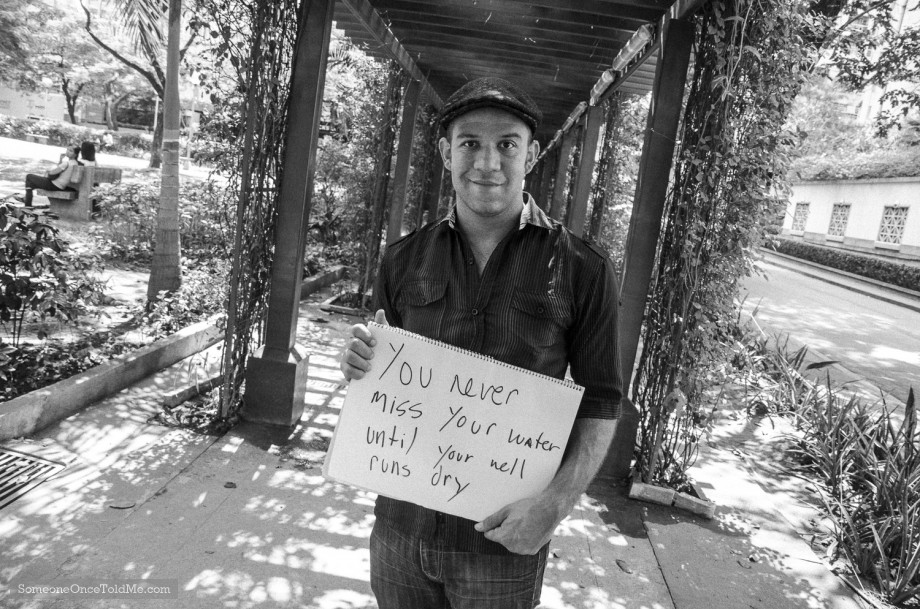 You never
miss your water
until your well
runs dry
SomeoneOnceToldMe.com